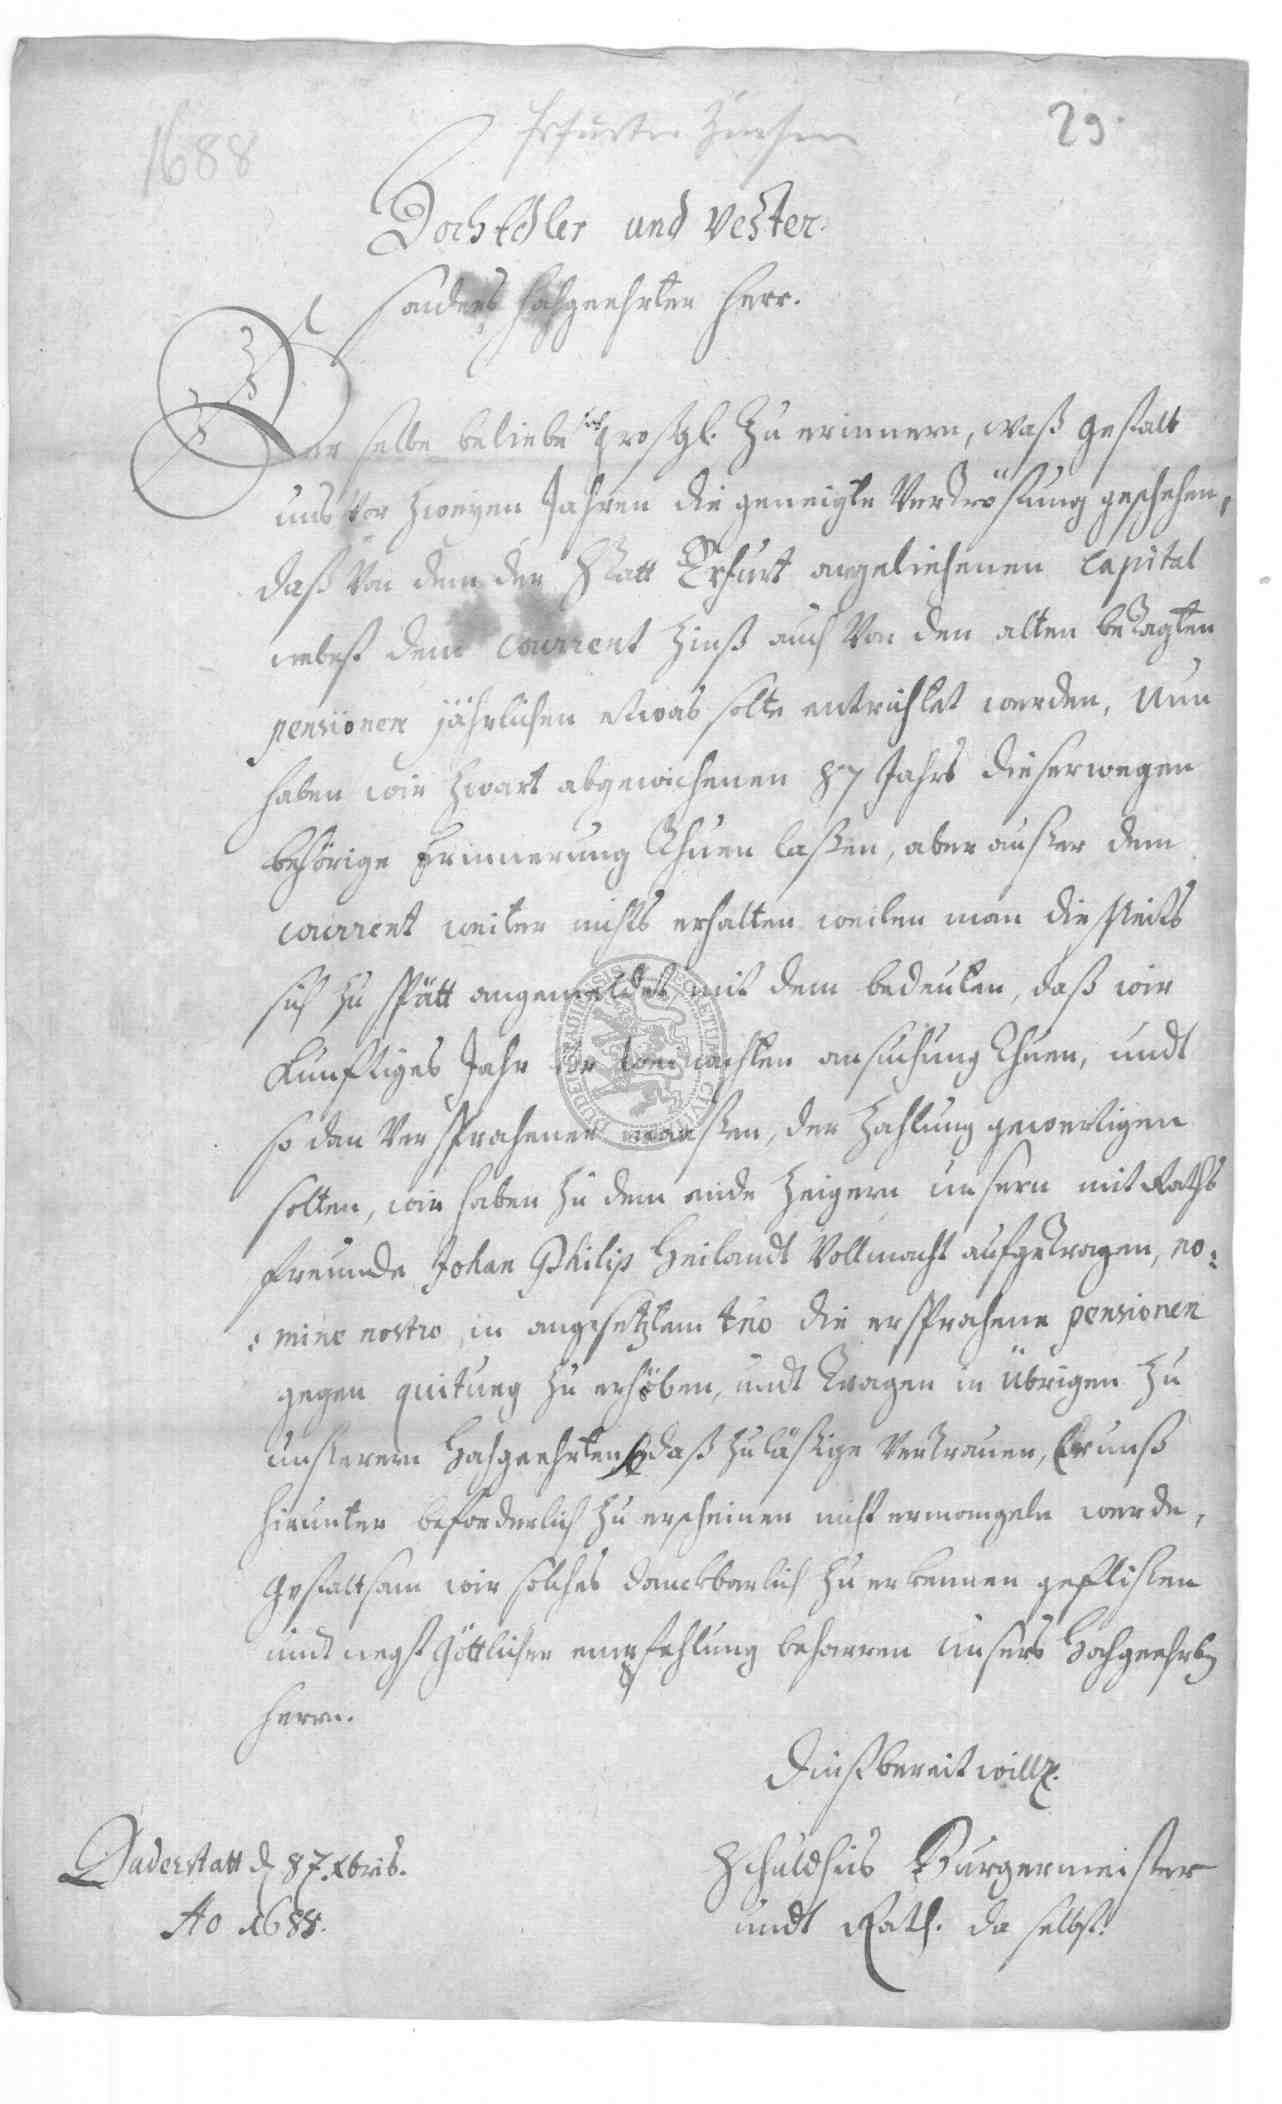 1688
Erfurter Zinsen
29.
HochEdler und Vester.
sonders hochgeehrter Herr.
Derselbe beliebe sich großgl. zu erinnern, waß gestalt
uns vor zweyen Jahren die geneigte Vertröstung geschehen,
daß von dem der Statt Erfurt angeliehenen Capital
nebst dem Courrent Zinß auch von den alten betagten
pensionen jährlichen etwas solte entrichtet werden, Nun
haben wir zwart abgewichenen 87 Jahrs dieserwegen
behörige Erinnerung thuen laßen, aber außer dem
courrent weiter nichts erhalten weilen man dießeits
sich zu spätt angemeldet mit dem bedeuten, daß wir
künfftiges Jahr vor ansuchung thuen, undt
so dan versprochener maaßen, der Zahlung gewertigen
solten, wir haben zu dem ende Zeigern unsern mit Raths
freunde Johan Philip Heilandt Vollmacht aufgetragen, no:
: mine nostro, in angesetztem tno die ersprochene pensionen
gegen quitung zu erhöben, undt tragen in übrigen zu
unserem Hochgeehrten daß zuläßige Vertrauen, Er unß
hirunter beforderlich zu erscheinen nicht ermangeln werde,
gestaltsam wir solches danckbarlich zu erkennen geflißen
undt negst göttlicher empfehlung beharren unsers Hochgeehrten
Herrn.
Dinstbereitwillg.
Duderstatt d 8 7.xbris.
Ao 1688.
Schuldheis Burgermeister
undt Rath. da selbst.